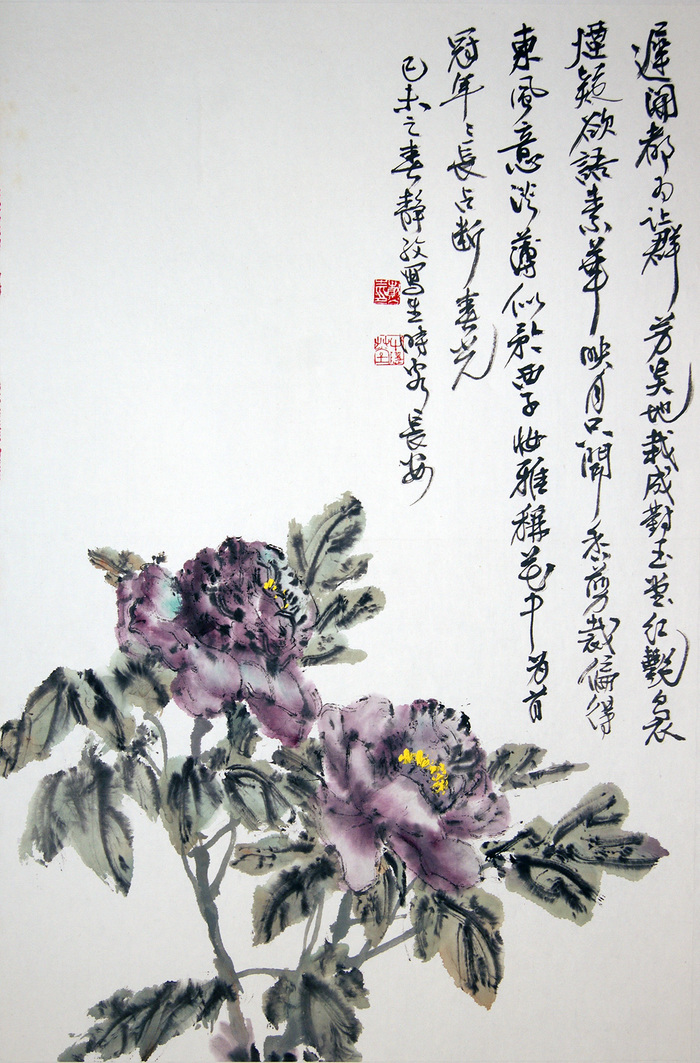 遲開都为让群芳吴地栽成對玉堂红艷裊
煙疑欲語素華映月只聞香剪裁偏得
東風意淡薄似矜西子妝雅稱花中为首
冠年々長占断春光
己未之春靜寫生時客長安